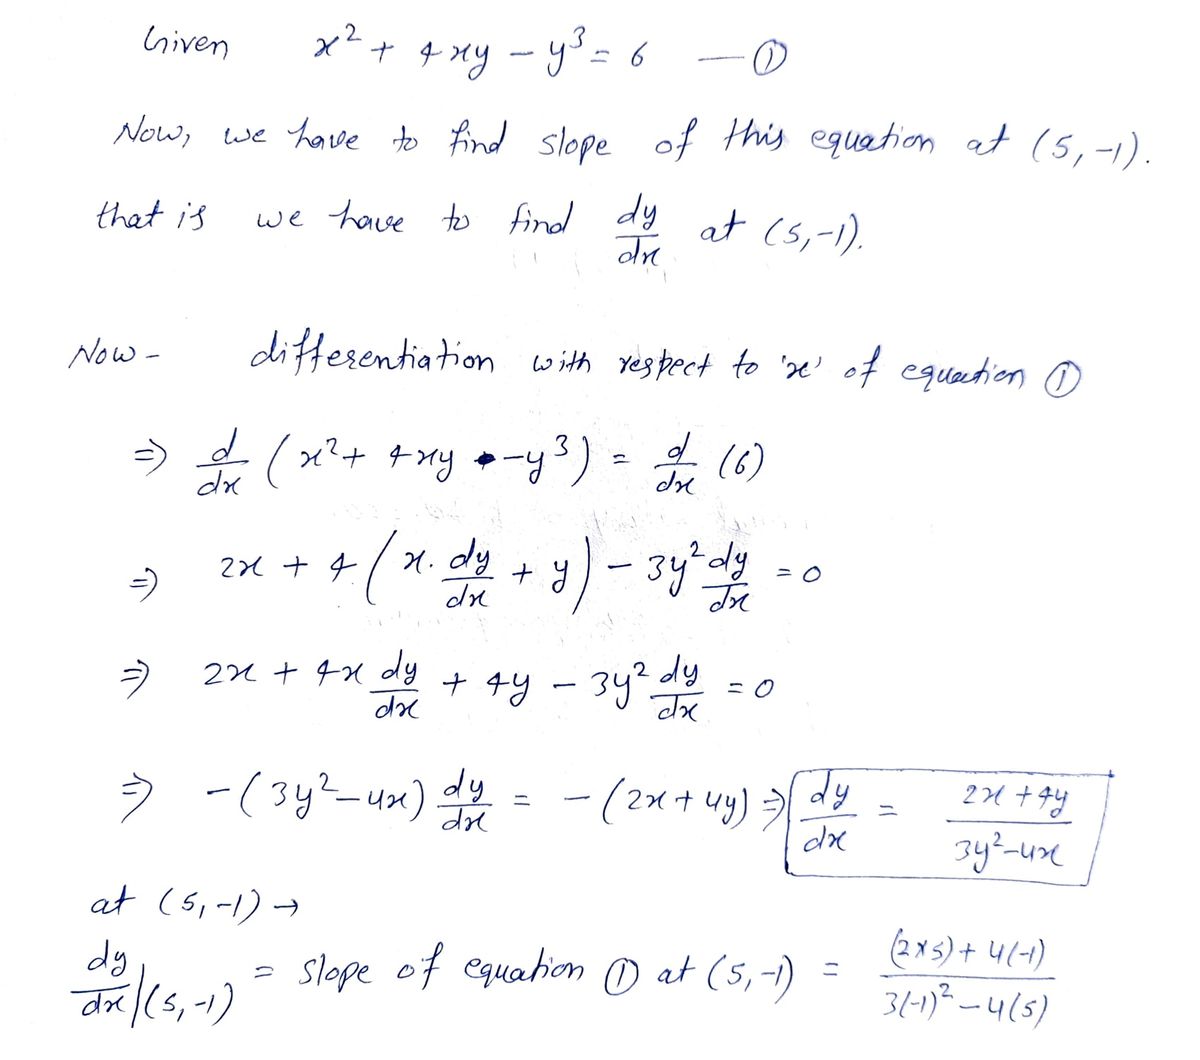 Given x² + 4xy - y³ = 6 — ①
Now, we have to find slope of this equation at (5, -1).
that is we have to find dy/dx at (5,-1).
Now - differentiation with respect to 'x' of equation ①
⇒ d/dx (x² + 4xy - y³) = d/dx (6)
⇒ 2x + 4(x. dy/dx + y) - 3y² dy/dx = 0
⇒ 2x + 4x dy/dx + 4y - 3y² dy/dx = 0
⇒ -(3y²-4x) dy/dx = -(2x+4y) ⇒ dy/dx = (2x+4y)/(3y²-4x)
at (5,-1) →
dy/dx|(5,-1) = slope of equation ① at (5,-1) = ((2×5)+4(-1))/(3(-1)²-4(5))